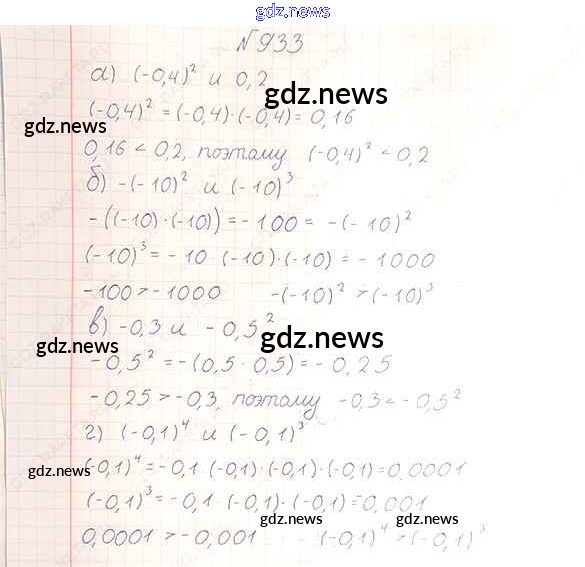 gdz.news
№933
а) (-0,4)² и 0,2
gdz.news
(-0,4)² = (-0,4)·(-0,4) = 0,16
gdz.news
0,16 < 0,2, поэтому (-0,4)² < 0,2
б) -(-10)² и (-10)³
-((-10)·(-10)) = -100 = -(-10)²
(-10)³ = -10·(-10)·(-10) = -1000
-100 > -1000 -(-10)² > (-10)³
в) -0,3 и -0,5²
gdz.news
gdz.news
-0,5² = -(0,5·0,5) = -0,25
-0,25 > -0,3, поэтому -0,3 < -0,5²
г) (-0,1)⁴ и (-0,1)³
(-0,1)⁴ = -0,1·(-0,1)·(-0,1)·(-0,1) = 0,0001
gdz.news
(-0,1)³ = -0,1·(-0,1)·(-0,1) = -0,001
gdz.news gdz.news
0,0001 > -0,001 (-0,1)⁴ > (-0,1)³